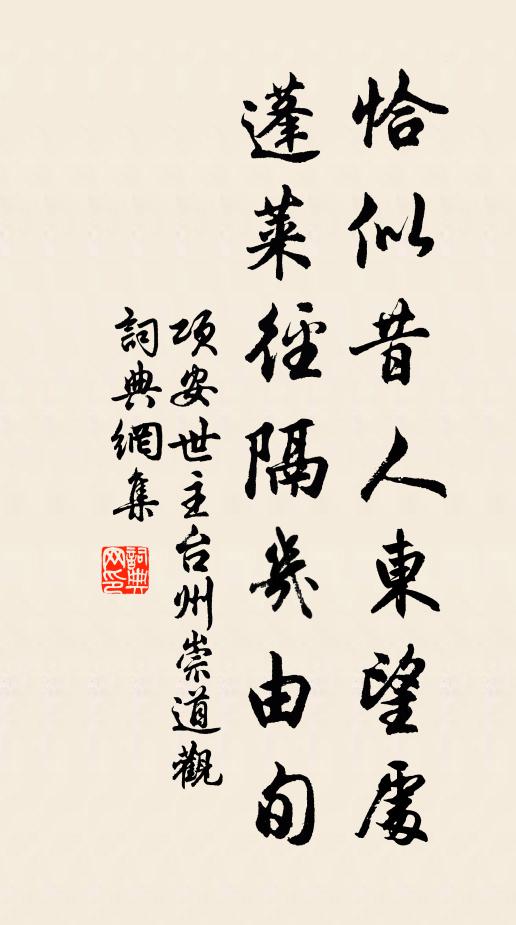 恰似昔人東望處
蓬萊徑隔幾由旬
項安世主台州崇道觀
詞典網集
詞典
网印